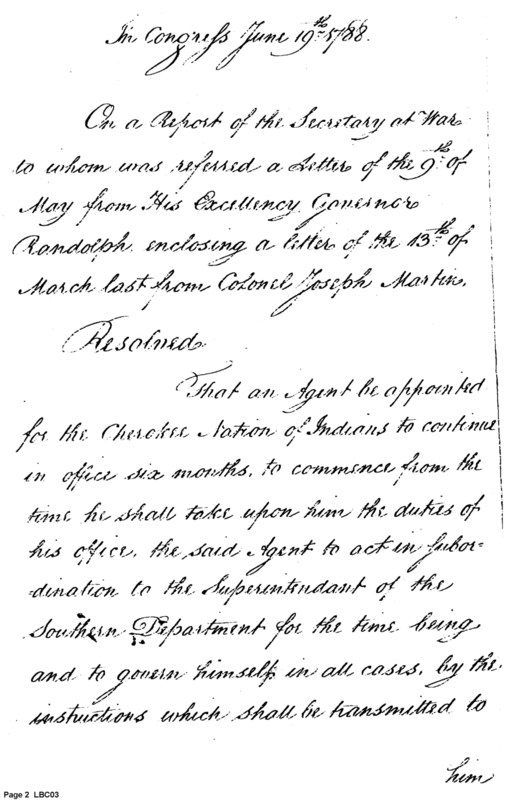 In Congress June 19th 1788.
On a Report of the Secretary at War
to whom was referred a Letter of the 9th of
May from His Excellency Governor
Randolph enclosing a letter of the 13th of
March last from Colonel Joseph Martin,
Resolved
That an Agent be appointed
for the Cherokee Nation of Indians to continue
in office six months, to commence from the
time he shall take upon him the duties of
his office, the said Agent to act in subor-
-dination to the Superintendant of the
Southern Department for the time being
and to govern himself in all cases, by the
instructions which shall be transmitted to
him
Page 2 LBC03